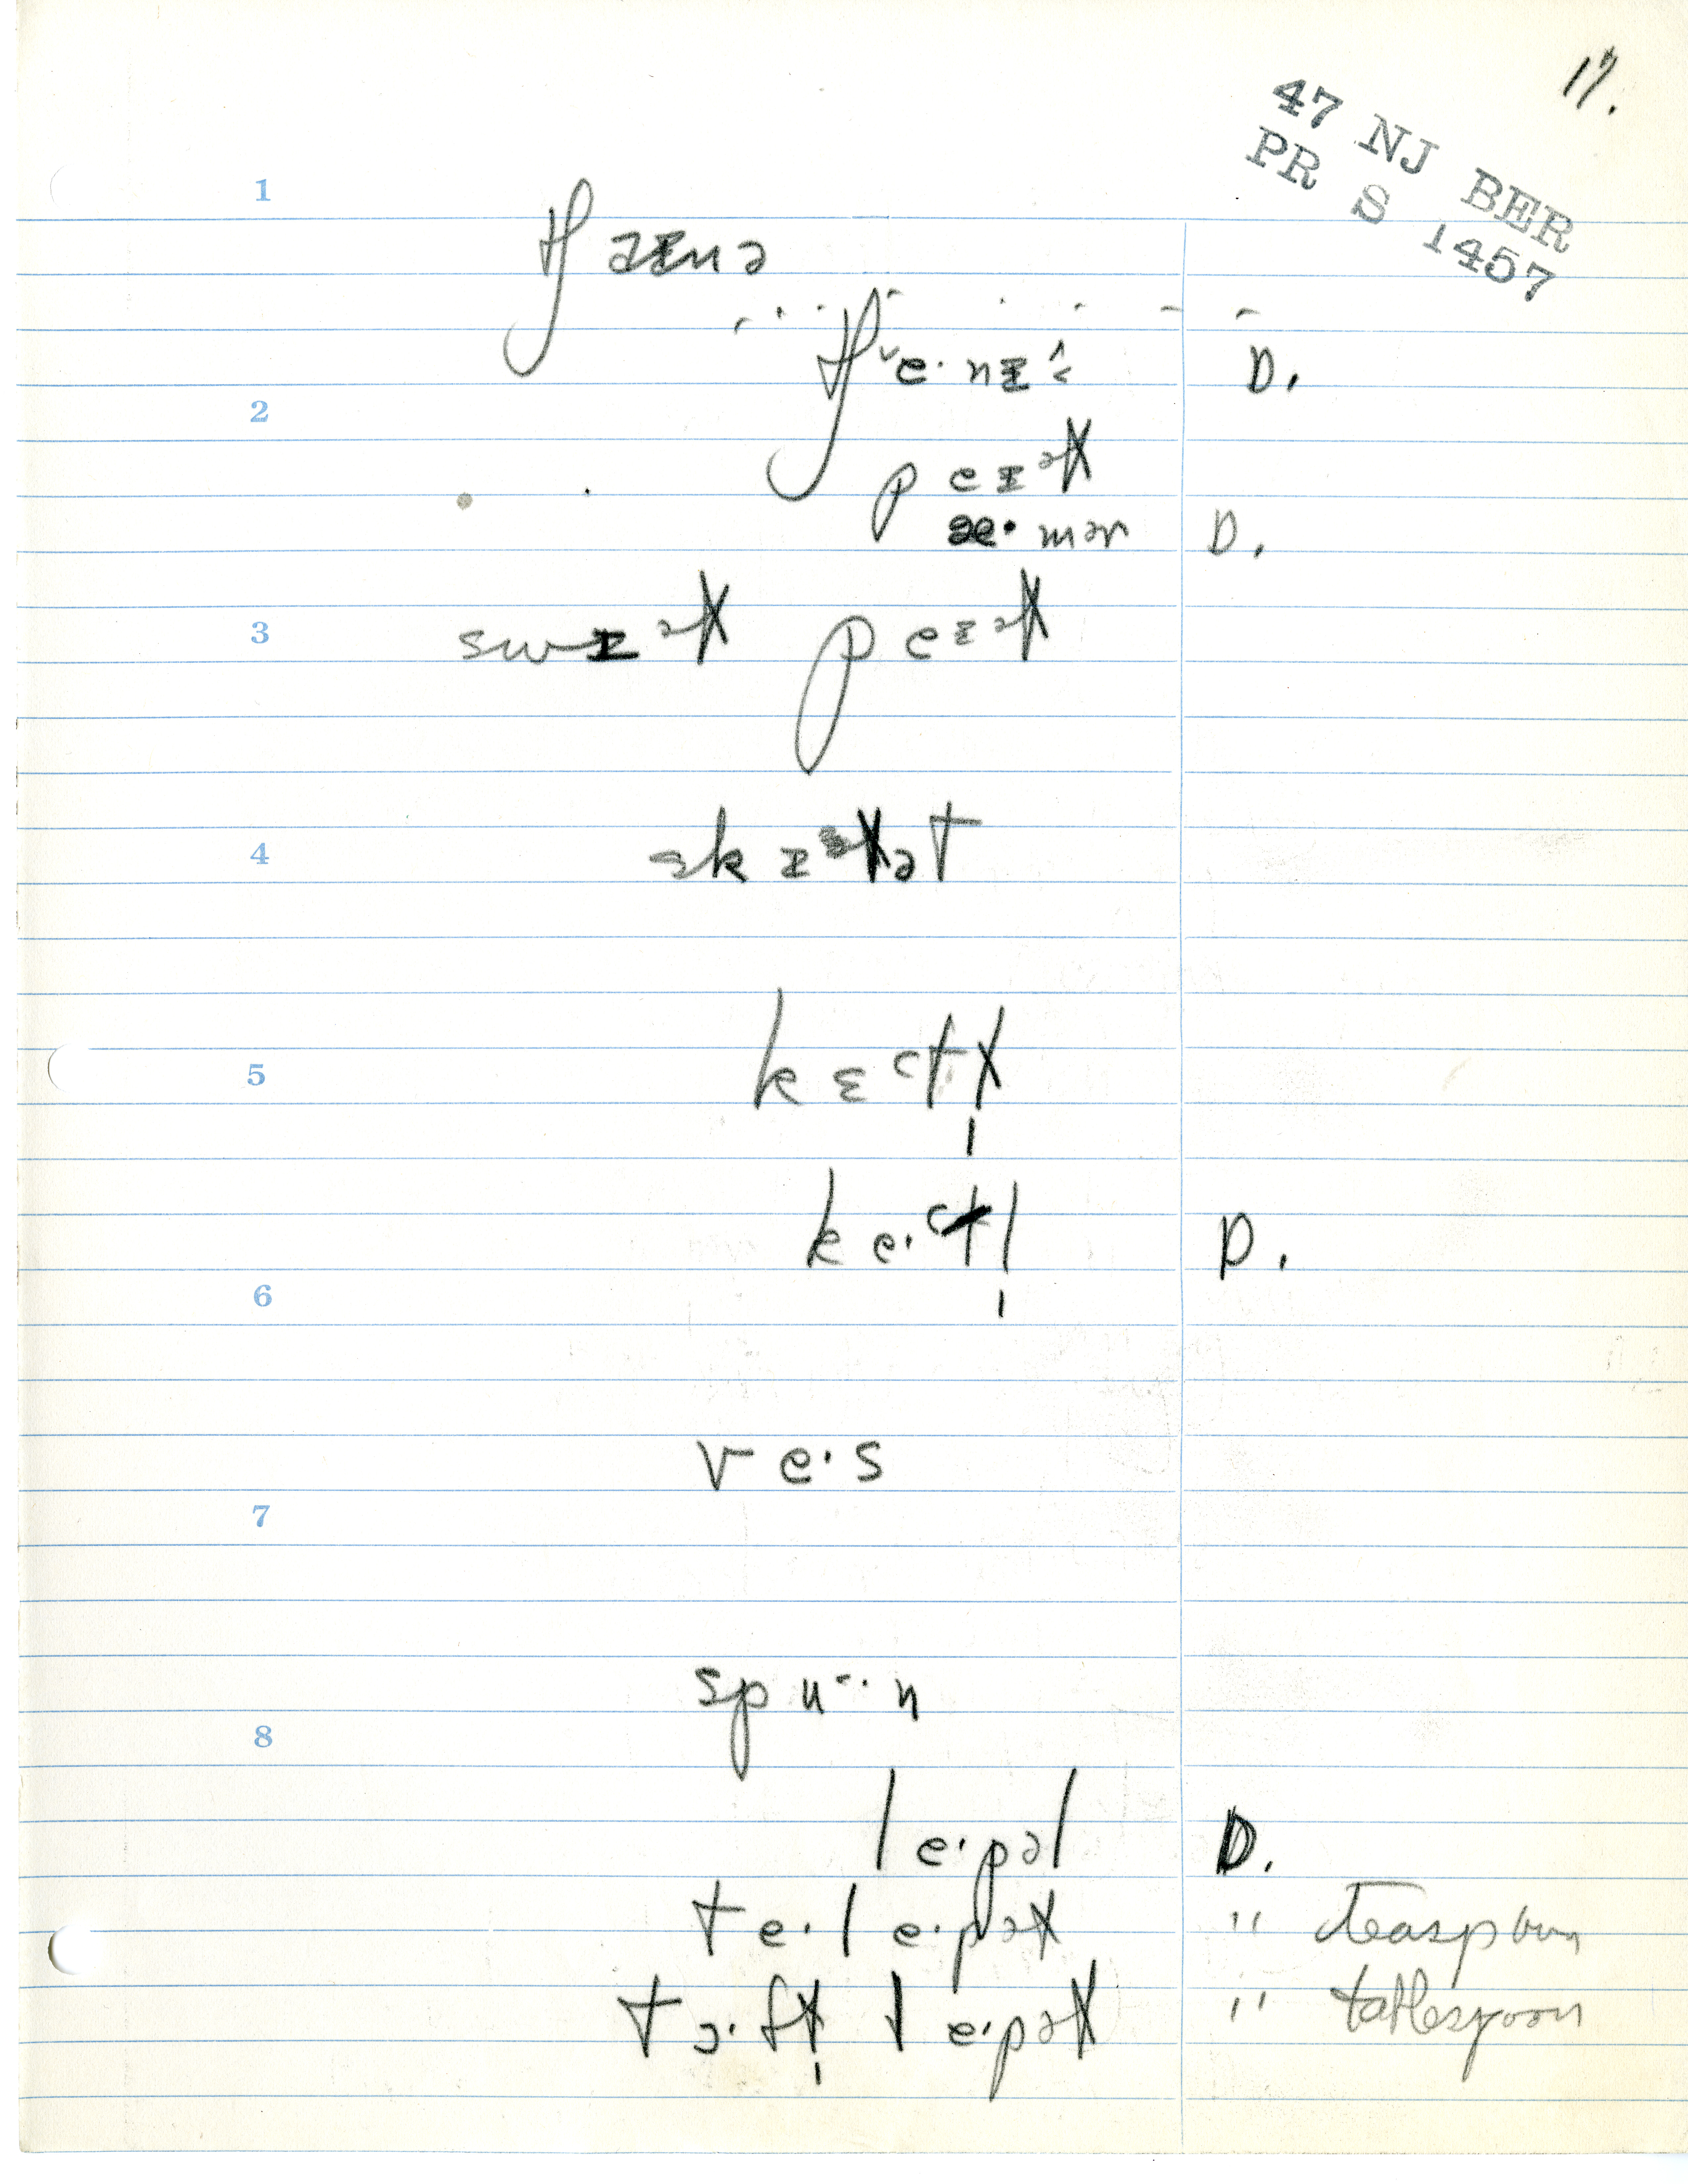 17.
47 NJ BER
PR S 1457
1
D.
2
peɪəɫ
æ· mər D.
3 swɪəɫ peɪəɫ
4 skɪəɫət
5 kɛᵊtɫ̩
ke·ᵊtl̩ D.
6
ve·s
7
spu·n
8
le·pəl D.
te·le·pəɫ " teaspoon
tɔ·fɫ̩ le·pəɫ " tablespoon